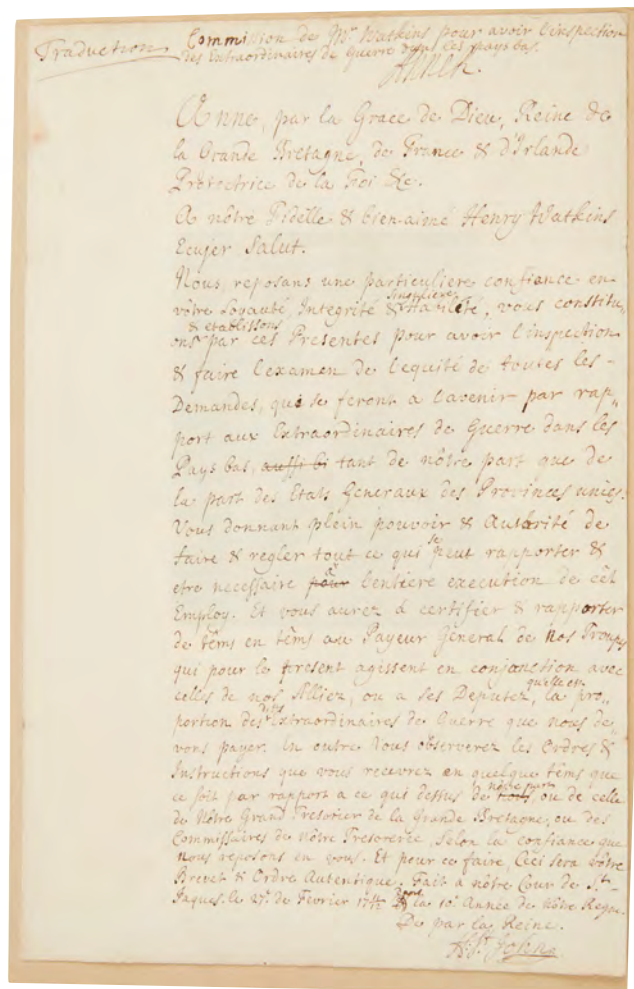 Traduction
Commission de Mr Watkins pour avoir l'inspection
des Extraordinaires de Guerre dans les pays bas.
Anne R.
Anne, par la Grace de Dieu, Reine de
la Grande Bretagne, de France & d'Irlande
Protectrice de la Foi &c.
A nôtre Fidelle & bien-aimé Henry Watkins
Ecuyer Salut.
Nous, reposans une particuliere confiance en
vôtre Loyauté, Integrité & singuliere Habileté, vous constitu,,
ons & etablissons par ces Presentes pour avoir l'inspection
& faire l'examen de l'equité de toutes les-
Demandes, qui se feront a l'avenir par rap,,
port aux Extraordinaires de Guerre dans les
Pays bas, aussi bi tant de nôtre part que de
la part des Etats Generaux des Provinces unies.
Vous donnant plein pouvoir & Autorité de
faire & regler tout ce qui se peut rapporter &
etre necessaire pour a l'entiere execution de cét
Employ. Et vous aurez à certifier & rapporter
de têms en têms au Payeur General de nos Troupes
qui pour le present agissent en conjonction avec
celles de nos Alliez, ou a ses Deputez, quelle est la pro,,
portion des dits Extraordinaires de Guerre que nous de-
vons payer. En outre Vous observerez les Ordres &
Instructions que vous recevrez en quelque têms que
ce soit par rapport a ce qui dessus de nôtre part, ou de celle
de Nôtre Grand Tresorier de la Grande Bretagne, ou des
Commissaires de nôtre Tresorerie, selon la confiance que
nous reposons en vous. Et pour ce faire, Ceci sera Vôtre
Brevet & Ordre Autentique. Fait a nôtre Cour de St-
Jaques le 27e de Fevrier 171½ la 10e Année de Nôtre Regne.
De par la Reine.
H. St John